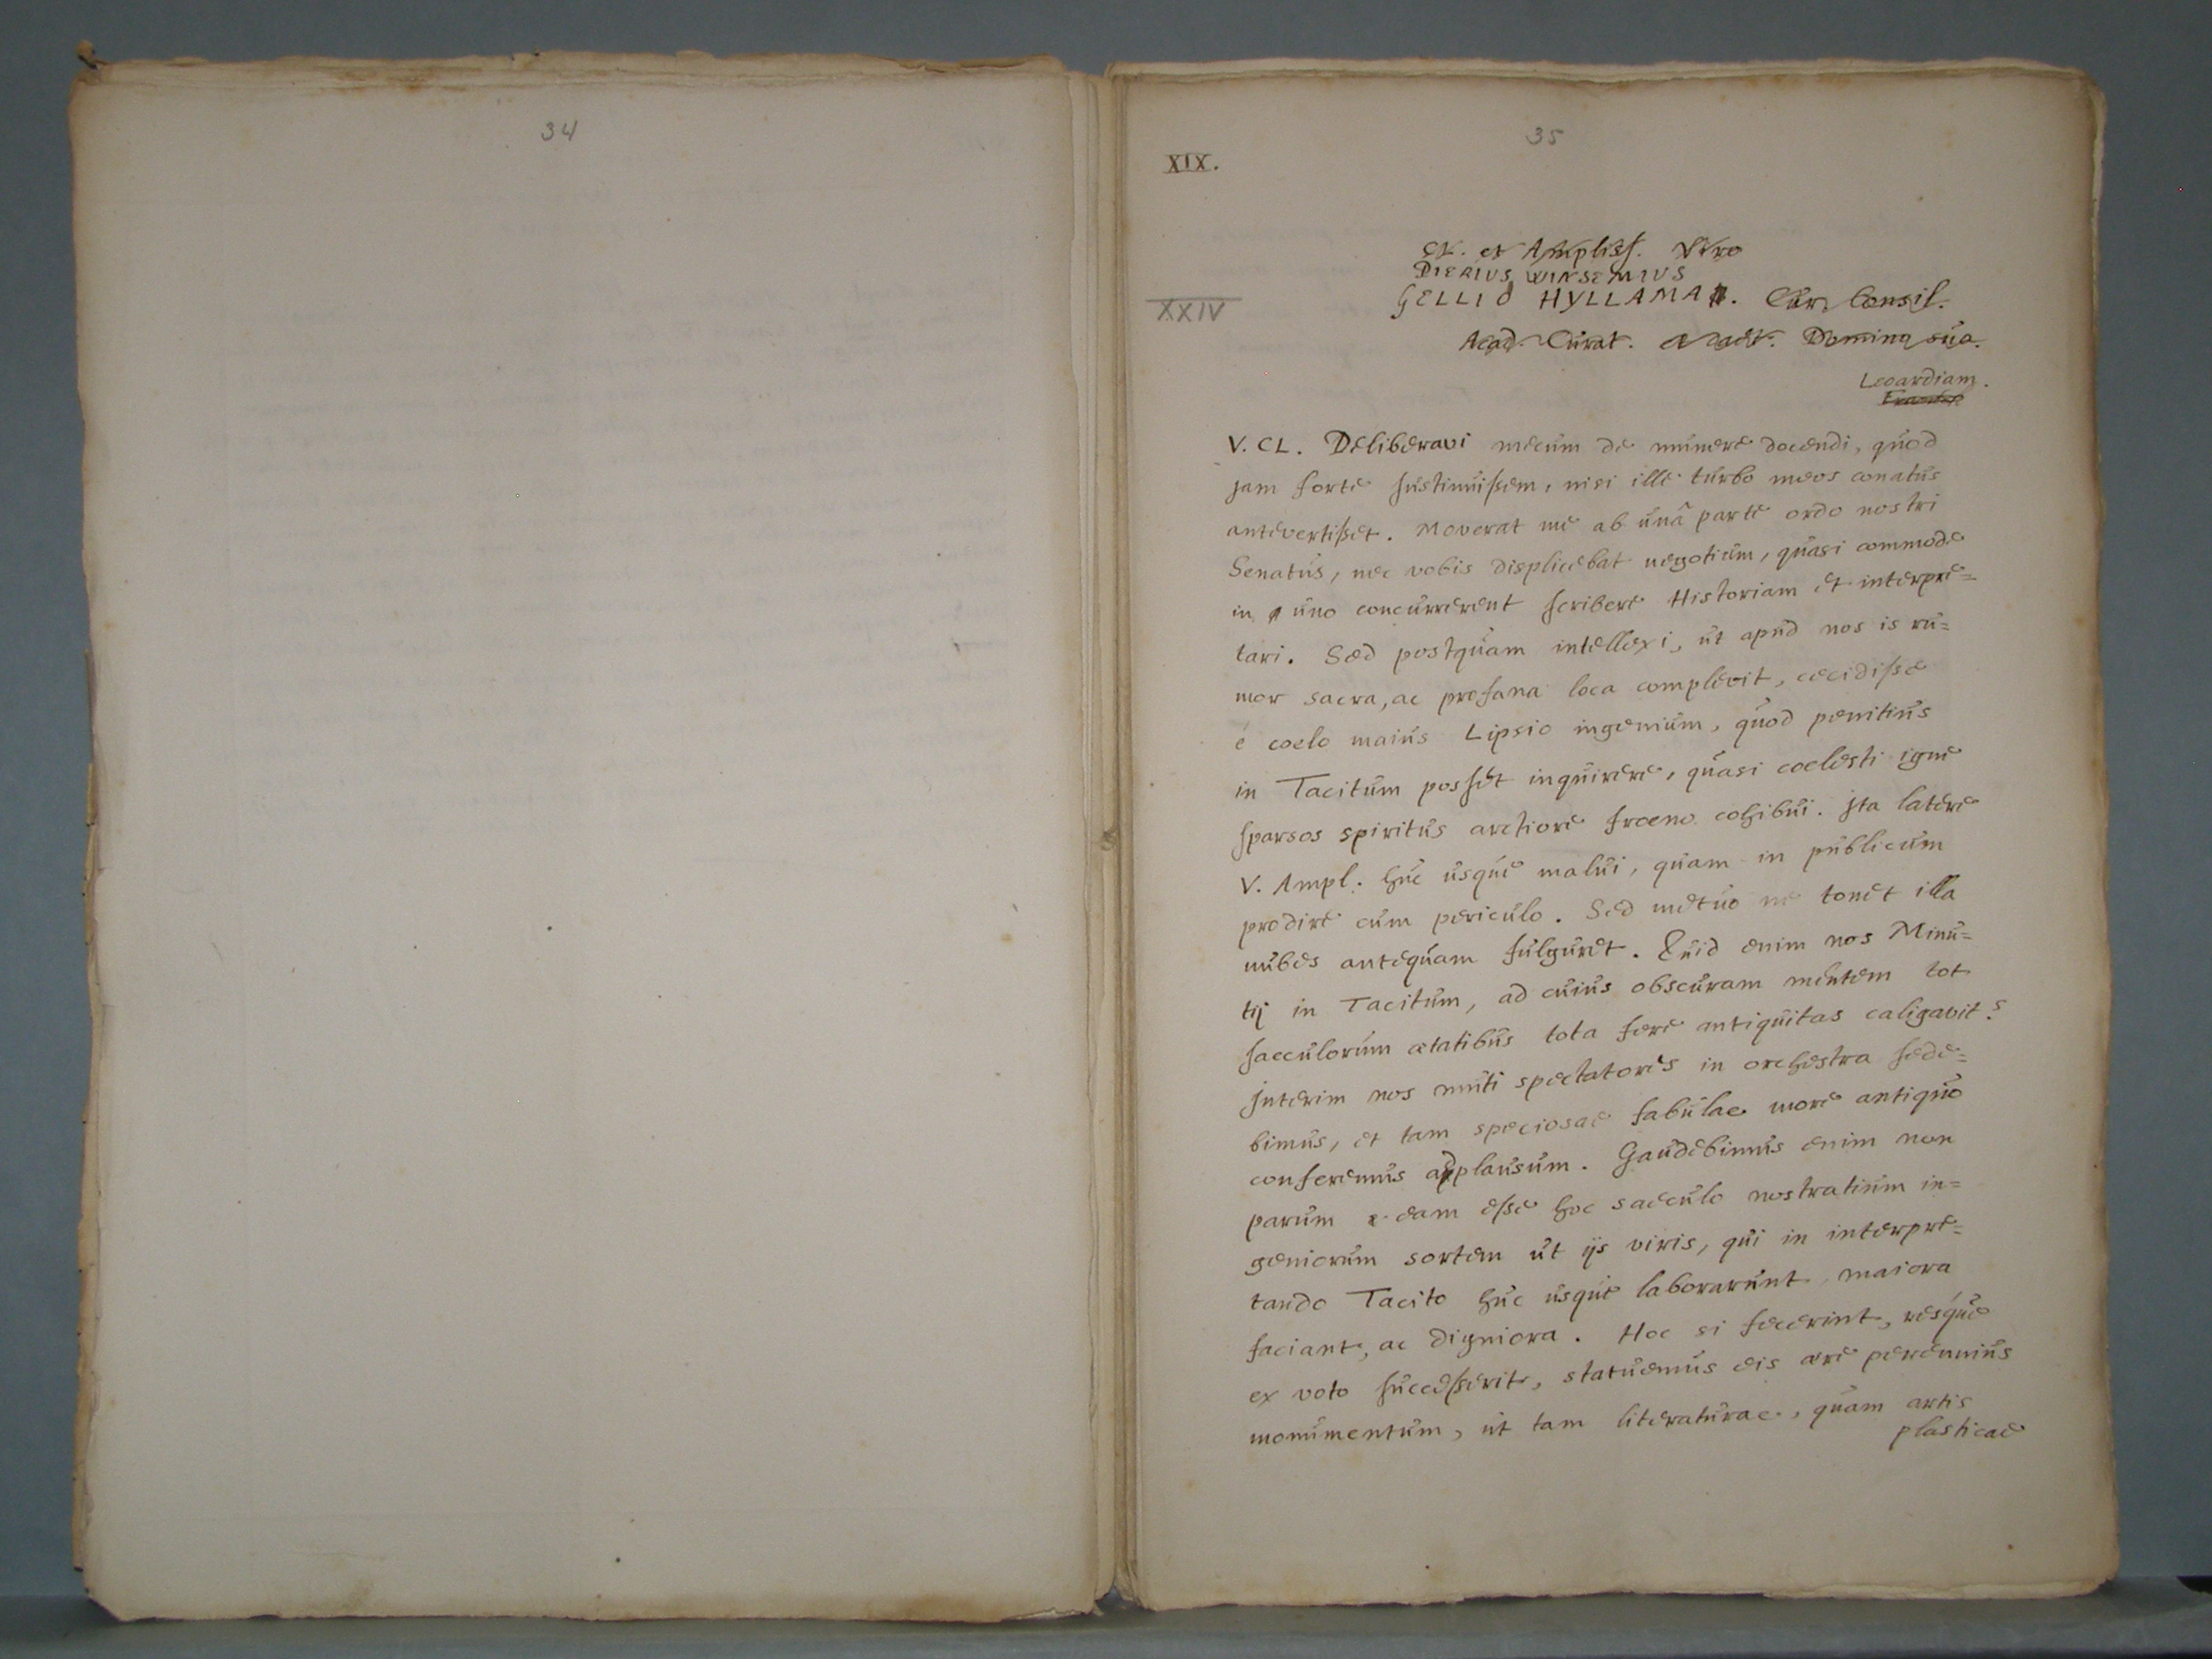 34
35
XIX.
et Ampliss. Viro
PIERIUS WINSEMIUS
XXIV
GELLIO HYLLAMA. Cur. Consil.
Acad. Curat. Domino suo.
Leoardiam.
V. CL. Deliberavi mecum de munere docendi, quod
jam forte sustinuissem, nisi ille turbo meos conatus
antevertisset. Moverat me ab unâ parte ordo nostri
Senatus, nec vobis displicebat negotium, quasi commode
in uno concurrerent scribere Historiam et interpre=
tari. Sed postquam intellexi, ut apud nos is ru=
mor sacra, ac profana loca complevit, cecidisse
é coelo maius Lipsio ingenium, quod penitius
in Tacitum posset inquirere, quasi coelesti igne
sparsos spiritus arctiore froeno cohibui. Jta latere
V. Ampl. huc usque malui, quam in publicum
prodire cum periculo. Sed metuo ne tonet illa
nubes antequam fulguret. Quid enim nos Minu=
tij in Tacitum, ad cuius obscuram mentem tot
saeculorum aetatibus tota fere antiquitas caligavit?
Jnterim nos muti spectatores in orchestra sede=
bimus, et tam speciosae fabulae more antiquo
conferemus applausum. Gaudebimus enim non
parum eam esse hoc saeculo nostratium in=
geniorum sortem ut ijs viris, qui in interpre=
tando Tacito huc usque laborarunt, maiora
faciant, ac digniora. Hoc si fecerint, resque
ex voto successerit, statuemus eis aere perennius
monumentum, ut tam literaturae, quam artis
plasticae